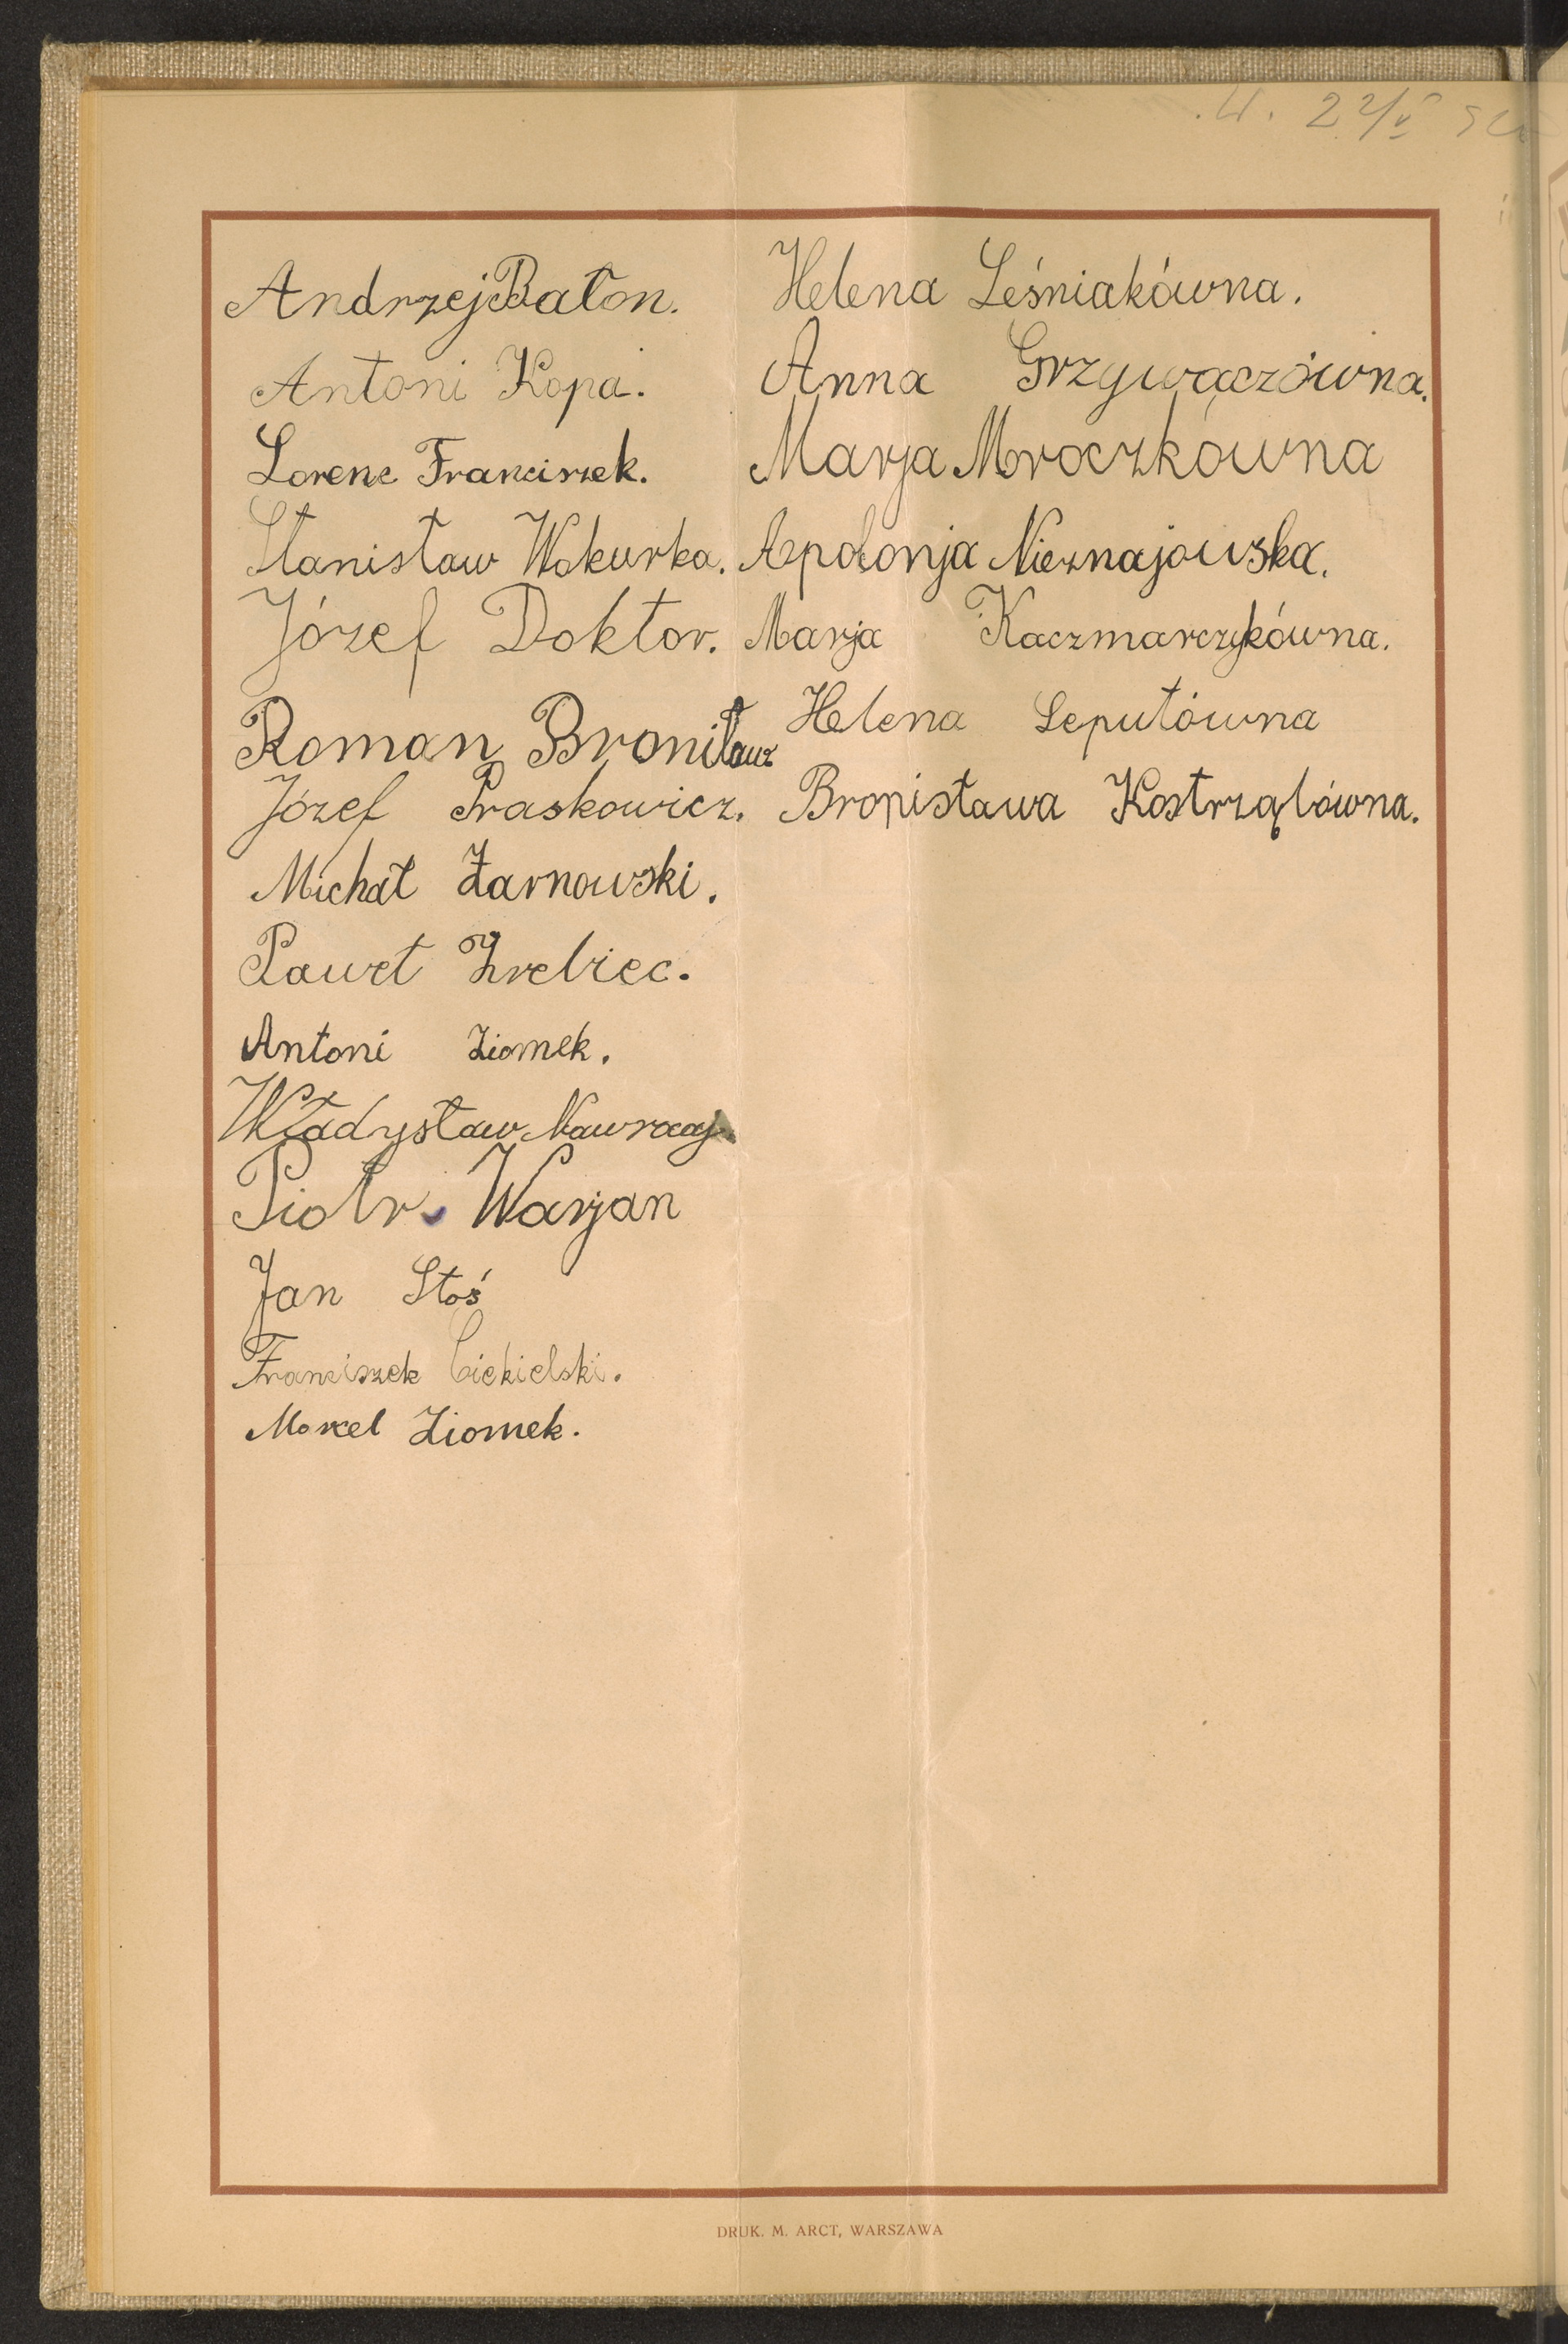 22/V
Andrzej Baton.
Antoni Kopa.
Lorenc Franciszek.
Stanisław Wokurka.
Józef Doktor.
Roman Broniław
Józef Praskowicz.
Michał Żarnowski.
Paweł Źrebiec.
Antoni Ziomek.
Władysław Nawrocej
Piotr Warjan
Jan Stoś
Franciszek Ciekielski.
Marcel Ziomek.
Helena Leśniakówna.
Anna Grzywaczówna.
Marja Mroczkówna
Apolonja Nieznajowska.
Marja Kaczmarczykówna.
Helena Leputówna
Bronisława Kostrząbówna.
DRUK. M. ARCT, WARSZAWA